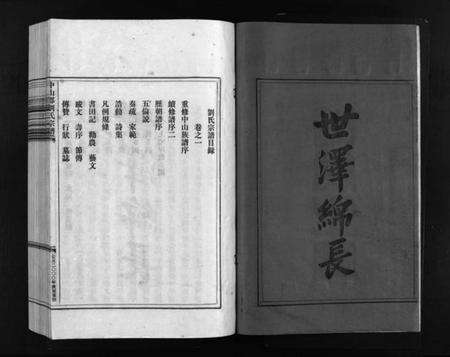 世澤綿長
劉氏宗譜目錄
卷之一
重修中山族譜序
續修譜序二
歷朝譜序
五倫說
奏疏　家範
浩勅　詩集
凡例規條
書田記　勸農　藝文
祝文　壽序　節傳
傳贊　行狀　墓誌
中山郡劉氏宗譜